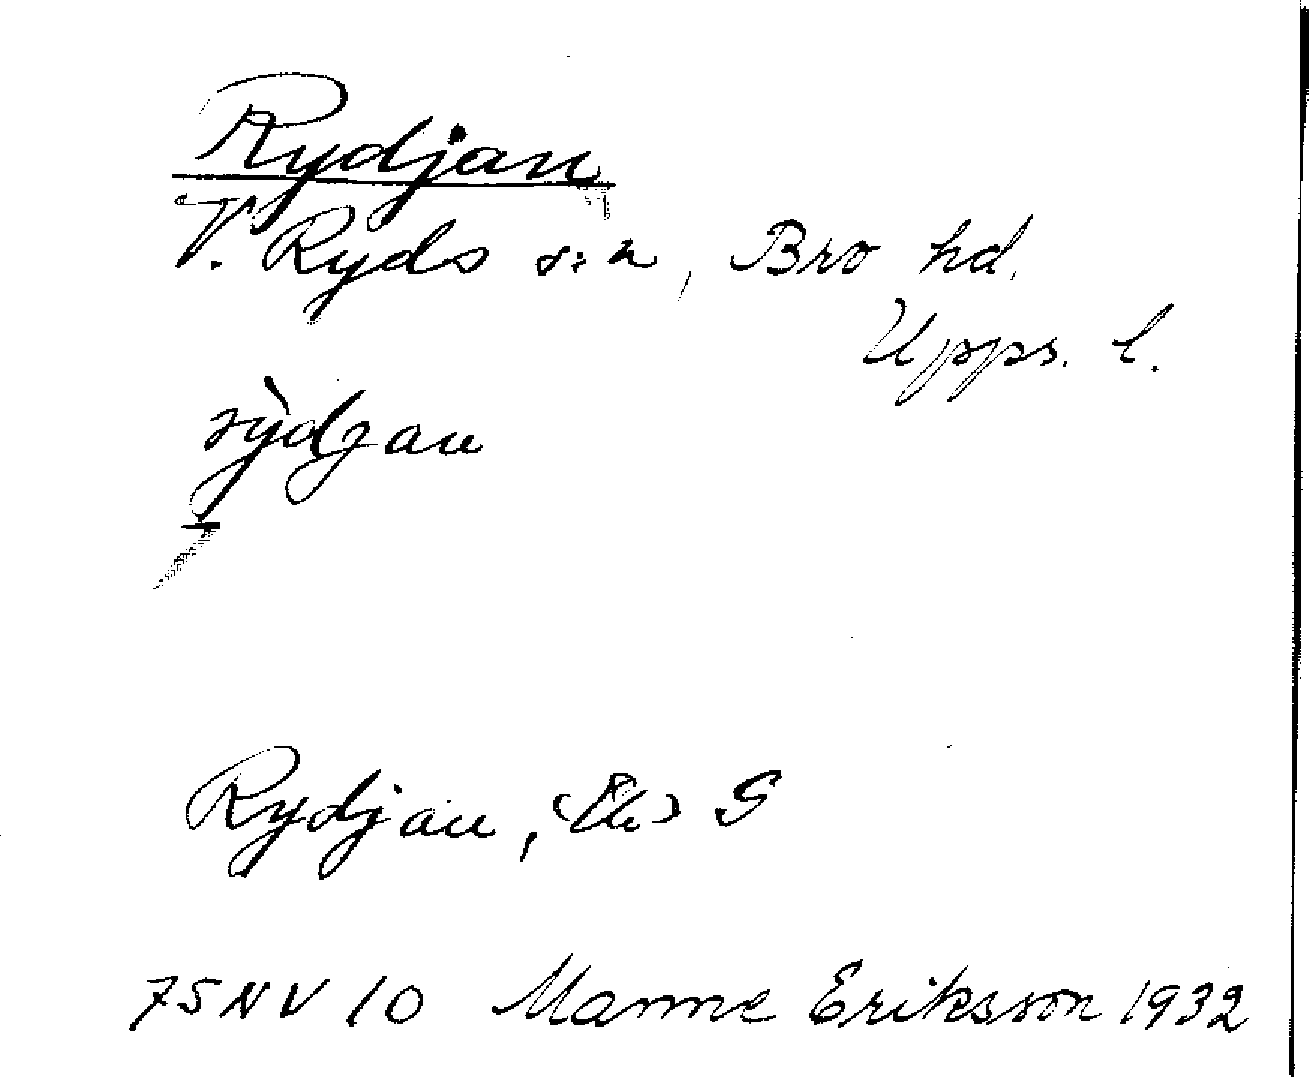 Rydjan
V. Ryds s:n, Bro hd.
Upps. l.
rỳdjan
Rydjan, (Ek) S
75NV 10 Manne Eriksson 1932